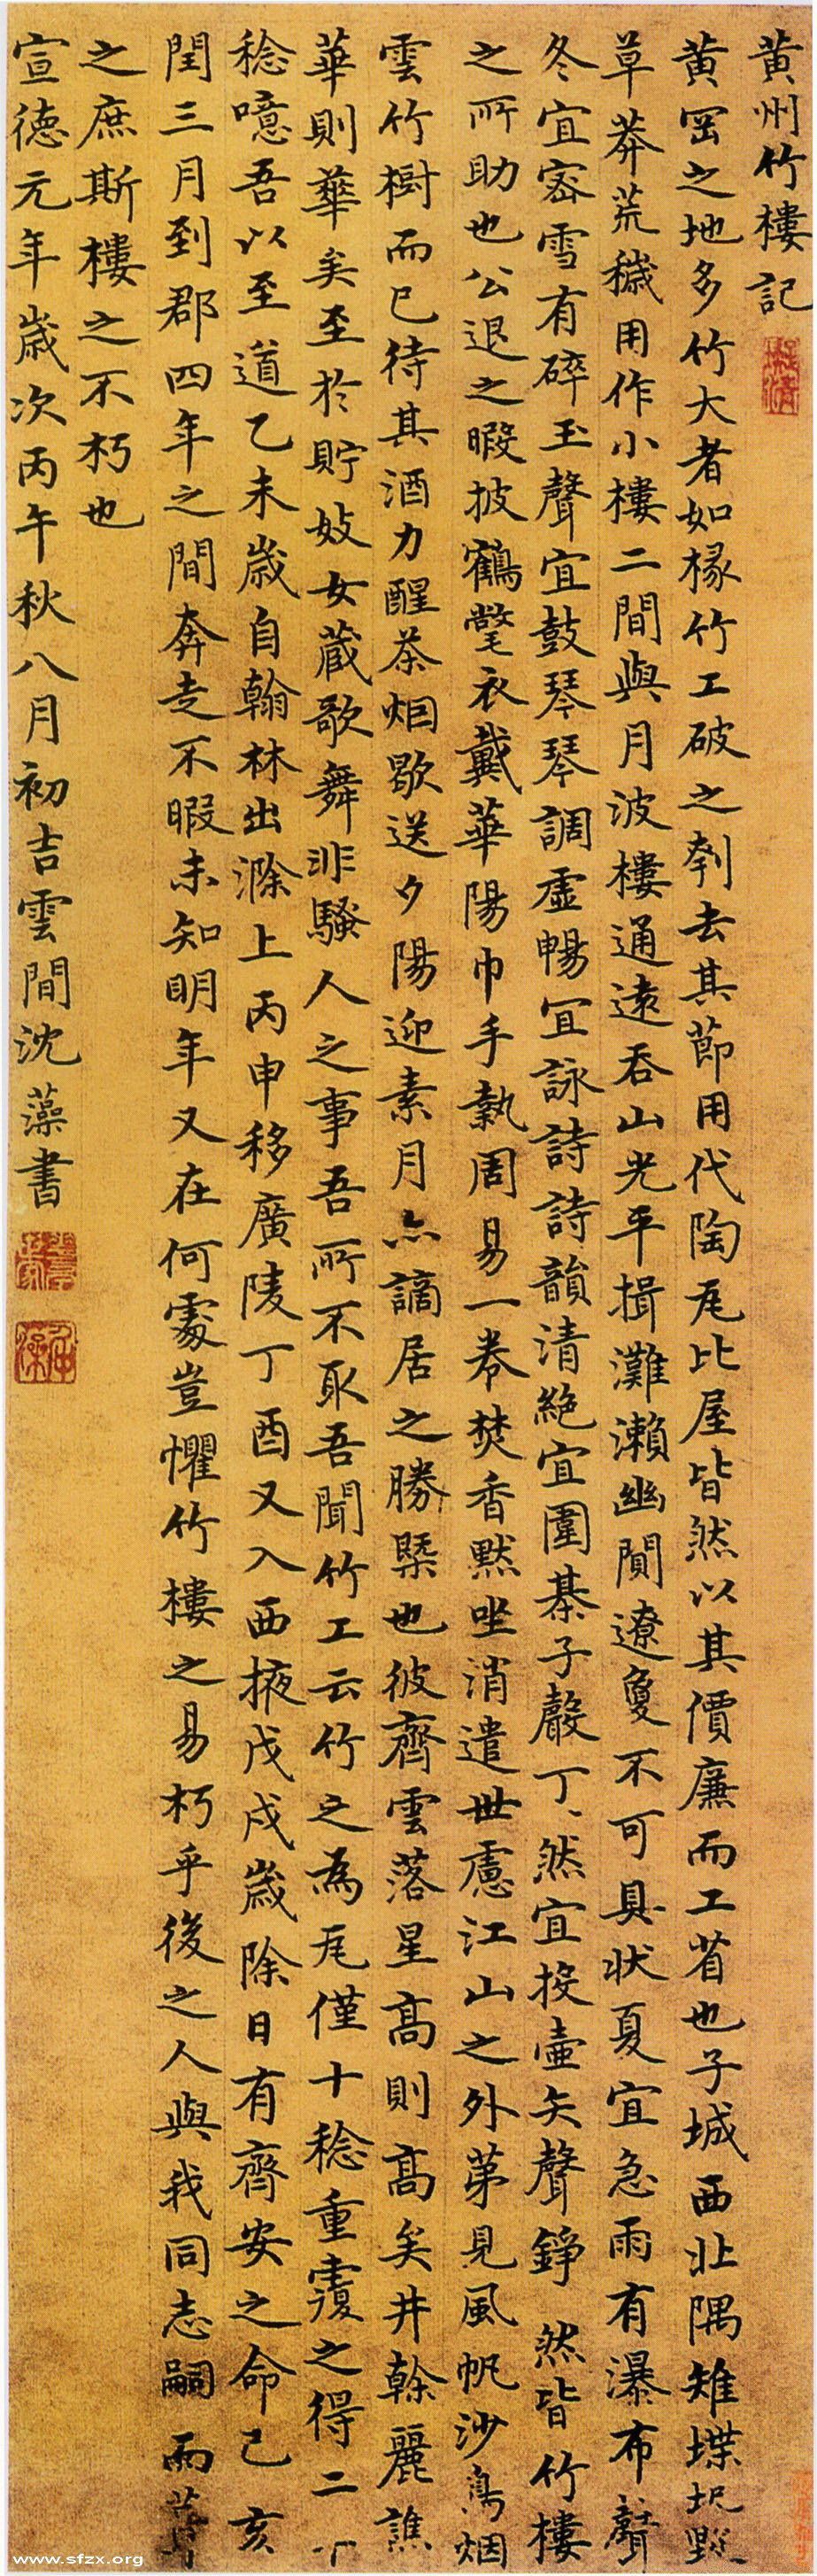 黄州竹樓記
黄岡之地多竹大者如椽竹工破之刳去其節用代陶瓦比屋皆然以其價廉而工省也子城西北隅雉堞圮毁
草莽荒穢用作小樓二間與月波樓通遠吞山光平揖灘瀨幽閴遼夐不可具狀夏宜急雨有瀑布聲
冬宜密雪有碎玉聲宜鼓琴琴調虛暢宜詠詩詩韻清絶宜圍棊子聲丁丶然宜投壺矢聲錚然皆竹樓
之所助也公退之暇披鶴氅衣戴華陽巾手執周易一卷焚香默坐消遣世慮江山之外苐見風帆沙鳥烟
雲竹樹而已待其酒力醒茶烟歇送夕陽迎素月亦謫居之勝槩也彼齊雲落星高則高矣井幹麗譙
華則華矣至於貯妓女藏歌舞非騷人之事吾所不取吾聞竹工云竹之為瓦僅十稔重覆之得二十
稔噫吾以至道乙未歲自翰林出滁上丙申移廣陵丁酉又入西掖戊戌歲除日有齊安之命己亥
閏三月到郡四年之間奔走不暇未知明年又在何處豈懼竹樓之易朽乎後之人與我同志嗣而葺
之庶斯樓之不朽也
宣德元年歲次丙午秋八月初吉雲間沈藻書
www.sfzx.org